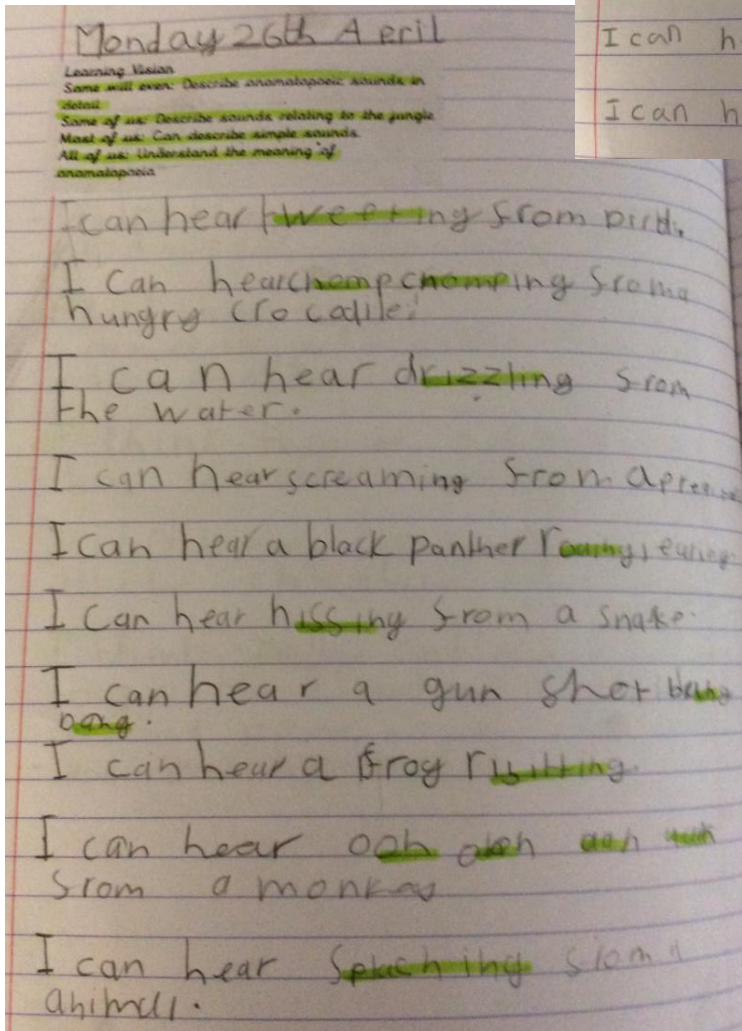 Monday 26th A eril
Learning Vision
Some will even: Describe onomatopoeic sounds in
detail
Some of us: Describe sounds relating to the jungle
Most of us: Can describe simple sounds.
All of us: Understand the meaning of
onomatopoeia
I can hear tweeting from bird.
I can hear chomp chomping from a
hungry crocodile.
I can hear drizzling from
the water.
I can hear screaming from a
I can hear a black panther roaring
I can hear hissing from a snake.
I can hear a gun shot bang
bang.
I can hear a frog ribitting.
I can hear ooh ooh aah aah
from a monkey
I can hear splashing from a
animal.
I can h
I can h